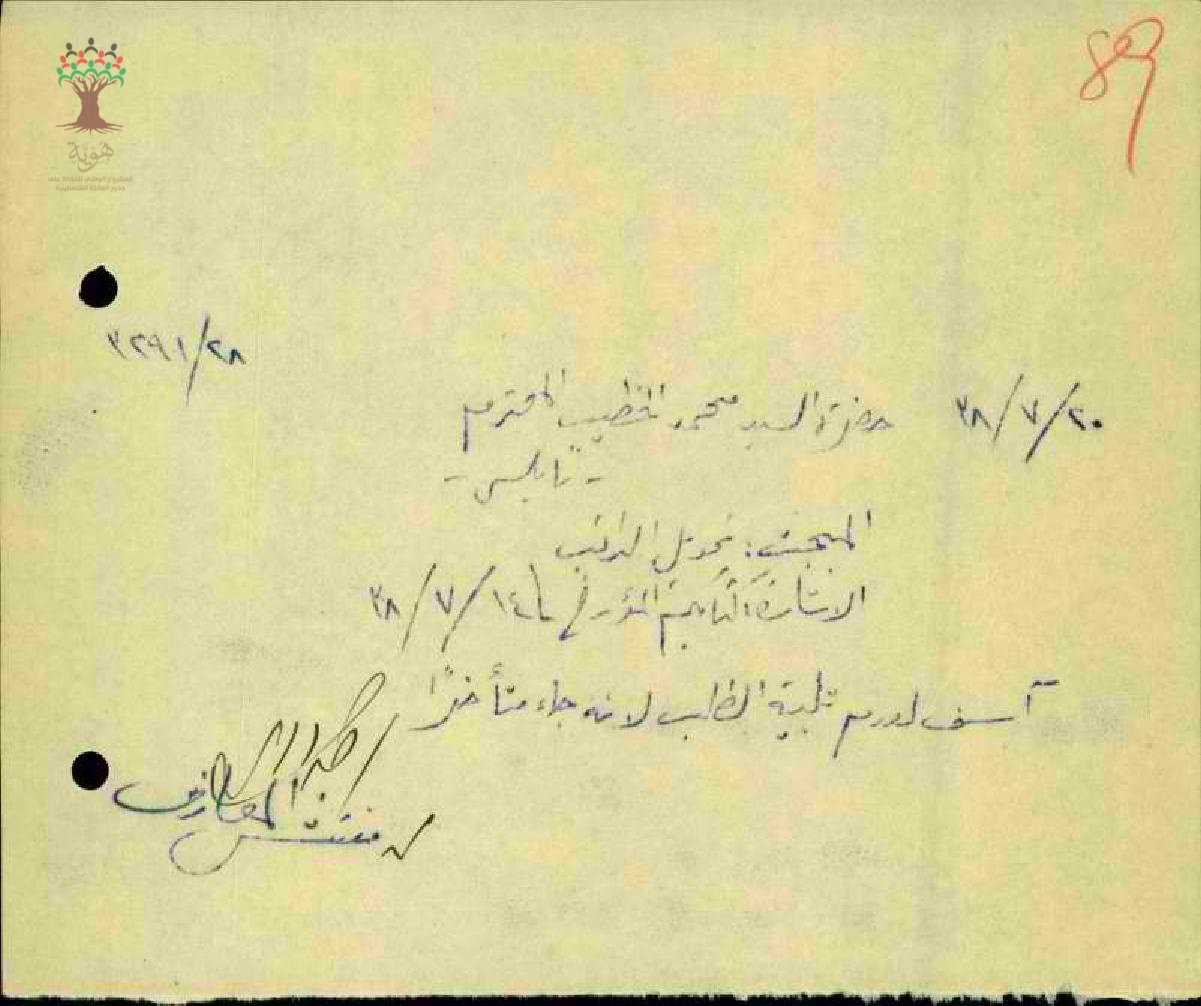 89
هوية
المشروع الوطني للحفاظ على
جذور العائلة الفلسطينية
٣٢٩١/٢٨
٣٨/٧/٢٠
حضرة السيد محمد الخطيب المحترم
- نابلس -
المبحث: تحويل الراتب
الاشارة: كتابكم المؤرخ في ٣٨/٧/١٤
آسف لعدم تلبية الطلب لانه جاء متأخرًا
مفتش المعارف